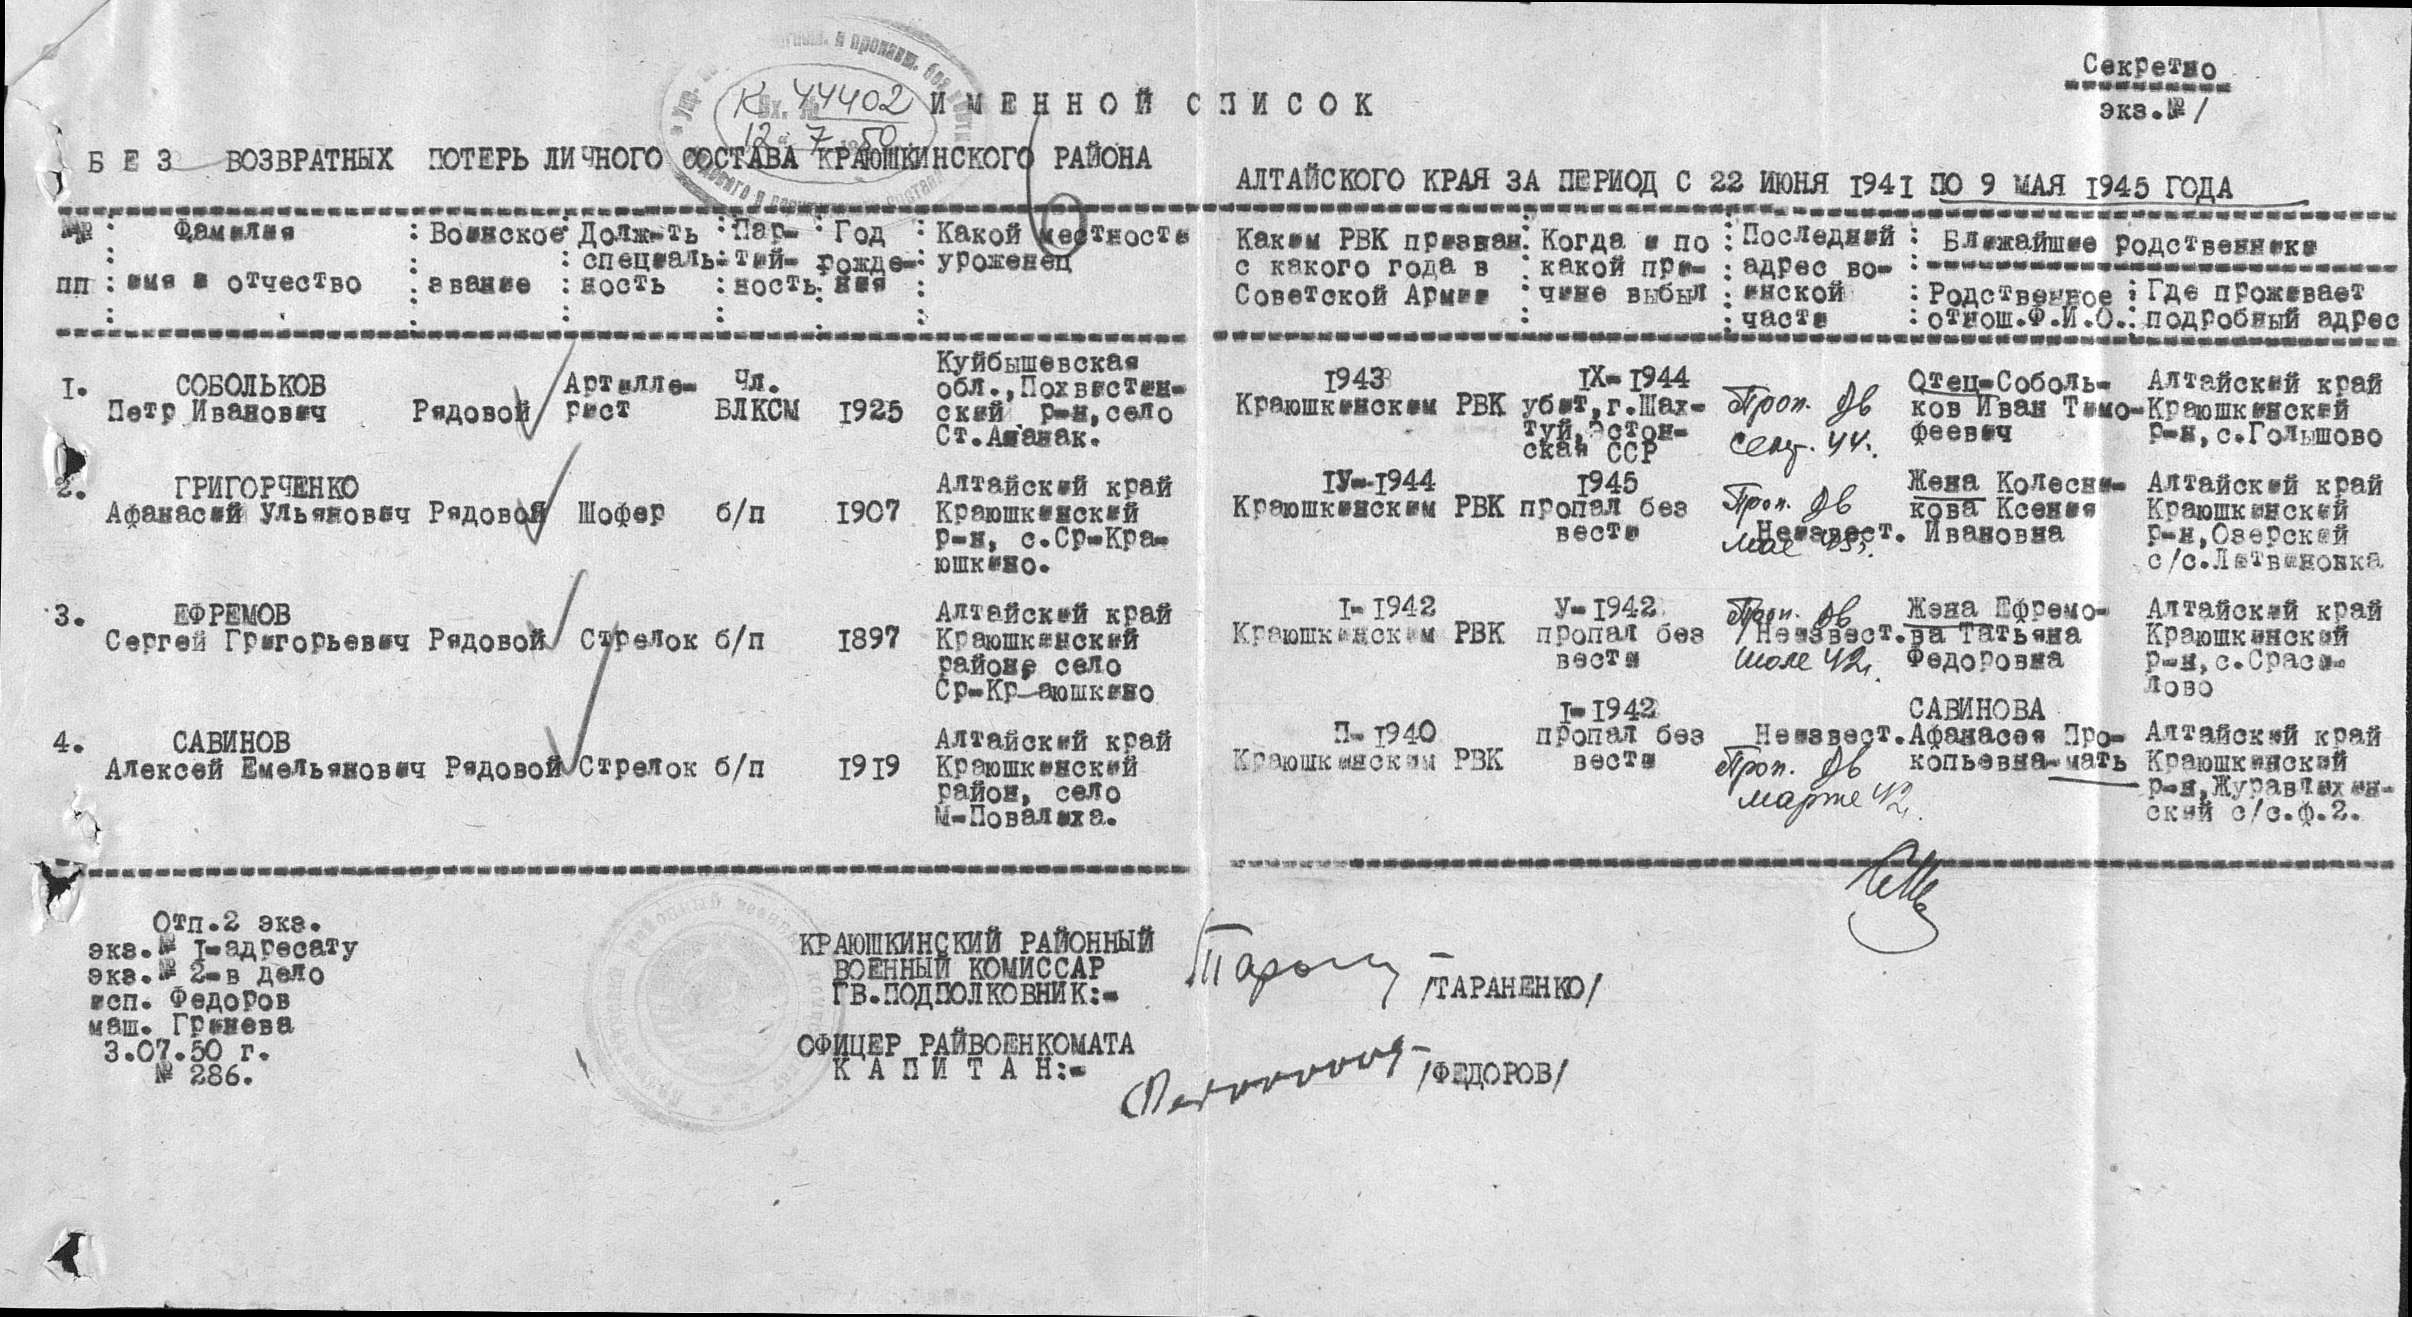 Секретно
экз.№ /
К 44402
Вх. №
12 7 50
ИМЕННОЙ СПИСОК
БЕЗ ВОЗВРАТНЫХ ПОТЕРЬ ЛИЧНОГО СОСТАВА КРАЮШКИНСКОГО РАЙОНА АЛТАЙСКОГО КРАЯ ЗА ПЕРИОД С 22 ИЮНЯ 1941 ПО 9 МАЯ 1945 ГОДА
№№ пп
Фамилия
имя и отчество
Воинское
звание
Долж-ть
специаль-
ность
Пар-
тий-
ность
Год
рожде-
ния
Какой местности
уроженец
Каким РВК призван
с какого года в
Советской Армии
Когда и по
какой при-
чине выбыл
Последний
адрес во-
инской
части
Ближайшие родственники
Родственное
отнош.Ф.И.О.
Где проживает
подробный адрес
1. СОБОЛЬКОВ
Петр Иванович
Рядовой
Артилле-
рист
Чл.
ВЛКСМ
1925
Куйбышевская
обл.,Похвистин-
ский р-н,село
Ст.Аманак.
1943
Краюшкинским РВК
IX-1944
убит,г.Шах-
туй,Эстон-
ская ССР
Проп. Ѳв
сент. 44.
Отец-Соболь-
ков Иван Тимо-
феевич
Алтайский край
Краюшкинский
р-н,с.Голышово
2. ГРИГОРЧЕНКО
Афанасий Ульянович
Рядовой
Шофер
б/п
1907
Алтайский край
Краюшкинский
р-н, с.Ср-Кра-
юшкино.
IУ-1944
Краюшкинским РВК
1945
пропал без
вести
Проп.
Неизвест.
мае 45.
Жена Колесни-
кова Ксения
Ивановна
Алтайский край
Краюшкинский
р-н,Озерский
с/с.Литвиновка
3. ЕФРЕМОВ
Сергей Григорьевич
Рядовой
Стрелок
б/п
1897
Алтайский край
Краюшкинский
район, село
Ср-Краюшкино
I-1942
Краюшкинским РВК
У-1942
пропал без
вести
Проп.
Неизвест.
июле 42.
Жена Ефремо-
ва Татьяна
Федоровна
Алтайский край
Краюшкинский
р-н,с.Сраси-
лово
4. САВИНОВ
Алексей Емельянович
Рядовой
Стрелок
б/п
1919
Алтайский край
Краюшкинский
район, село
М-Повалиха.
П-1940
Краюшкинским РВК
I-1942
пропал без
вести
Неизвест.
Проп.
марте 42.
САВИНОВА
Афанасея Про-
копьевна-мать
Алтайский край
Краюшкинский
р-н,Журавлихин-
ский с/с.ф.2.
Отп.2 экз.
экз.№ I-адресату
экз.№ 2-в дело
исп. Федоров
маш. Гринева
3.07.50 г.
№ 286.
КРАЮШКИНСКИЙ РАЙОННЫЙ
ВОЕННЫЙ КОМИССАР
ГВ.ПОДПОЛКОВНИК:-
/ТАРАНЕНКО/
ОФИЦЕР РАЙВОЕНКОМАТА
КАПИТАН:-
/ФЕДОРОВ/